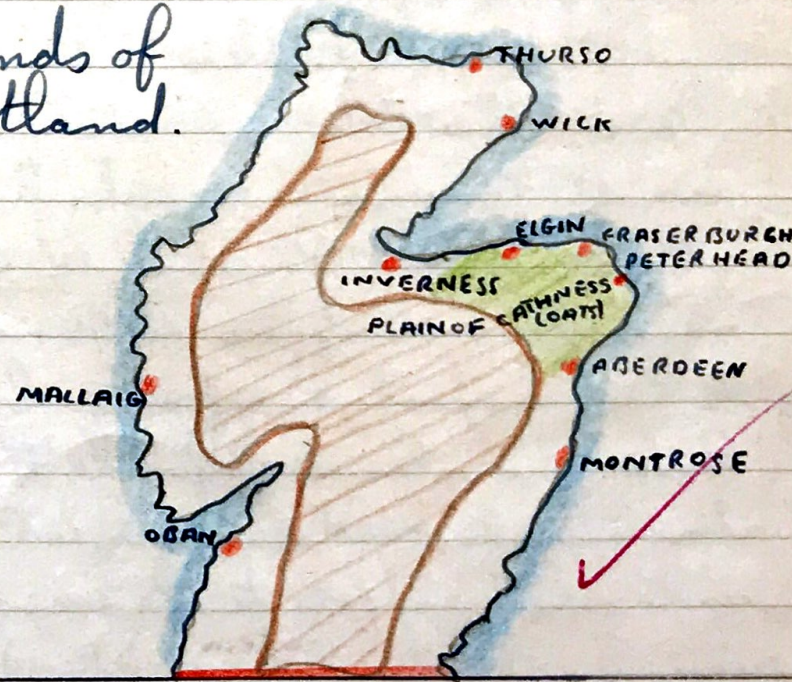 nds of
tland.
THURSO
WICK
ELGIN
FRASERBURGH
PETERHEAD
INVERNESS
PLAIN OF CATHNESS
(OATS)
ABERDEEN
MALLAIG
MONTROSE
OBAN